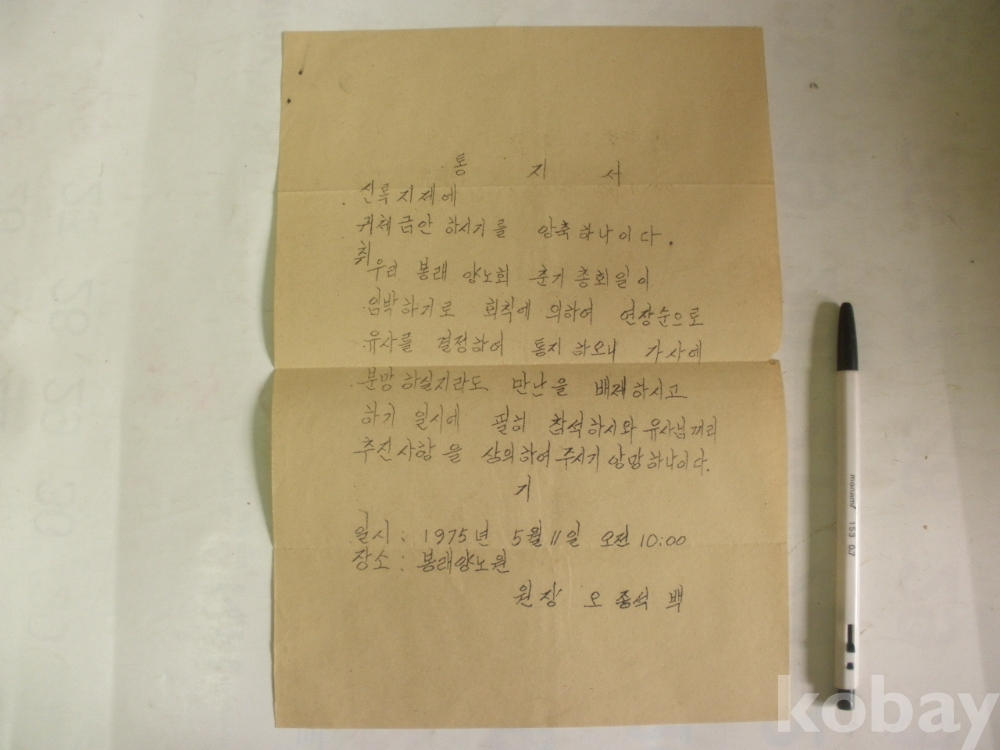 통 지 서
신록지제에
귀체금안 하시기를 앙축하나이다.
취
우리 봉래 양노회 춘기총회일이
임박하기로 회칙에 의하여 연장순으로
유사를 결정하여 통지하오니 가사에
분망하실지라도 만난을 배제하시고
하기 일시에 필히 참석하시와 유사님끼리
추진사항을 상의하여주시기 앙망하나이다.
기
일시 : 1975년 5월 11일 오전 10:00
장소 : 봉래양노원
원장 오종석 백
monami 153 0.7
kobay